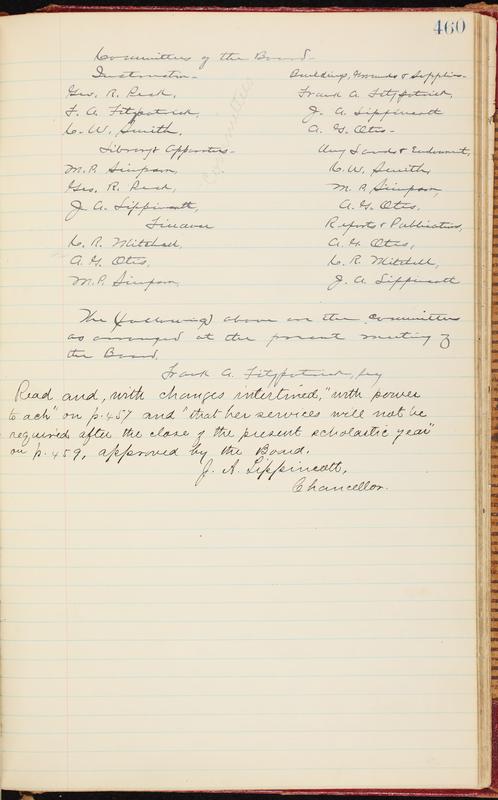 460
Committees of the Board.
Instruction.
Geo. R. Peck,
F. A. Fitzpatrick,
C. W. Smith,
Library & Apparatus.
M. P. Simpson,
Geo. R. Peck,
J. A. Lippincott,
Finance
C. R. Mitchell,
A. G. Otis,
M. P. Simpson,
Buildings, Grounds & Supplies.
Frank A. Fitzpatrick,
J. A. Lippincott
A. G. Otis.
Lands & Endowment,
C. W. Smith,
M. P. Simpson,
A. G. Otis.
Reports & Publication,
A. G. Otis,
C. R. Mitchell,
J. A. Lippincott
Committees
The (following) above are the committees
as arranged at the present meeting of
the Board.
Frank A. Fitzpatrick,
Read and, with changes interlined, "with power
to act" on p. 457 and "that her services will not be
required after the close of the present scholastic year"
on p. 459, approved by the Board.
J. A. Lippincott,
Chancellor.